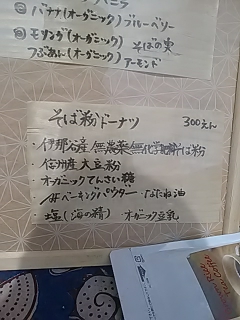 バナナ(オーガニック) ブルーベリー
モリンガ(オーガニック) そばの実
つぶあん(オーガニック) アーモンド
そば粉ドーナツ 300えん
・伊那谷産 無農薬 無化学肥料そば粉
・信州産大豆粉
・オーガニックてんさい糖
・ベーキングパウダー・なたね油
・塩(海の精) オーガニック豆乳